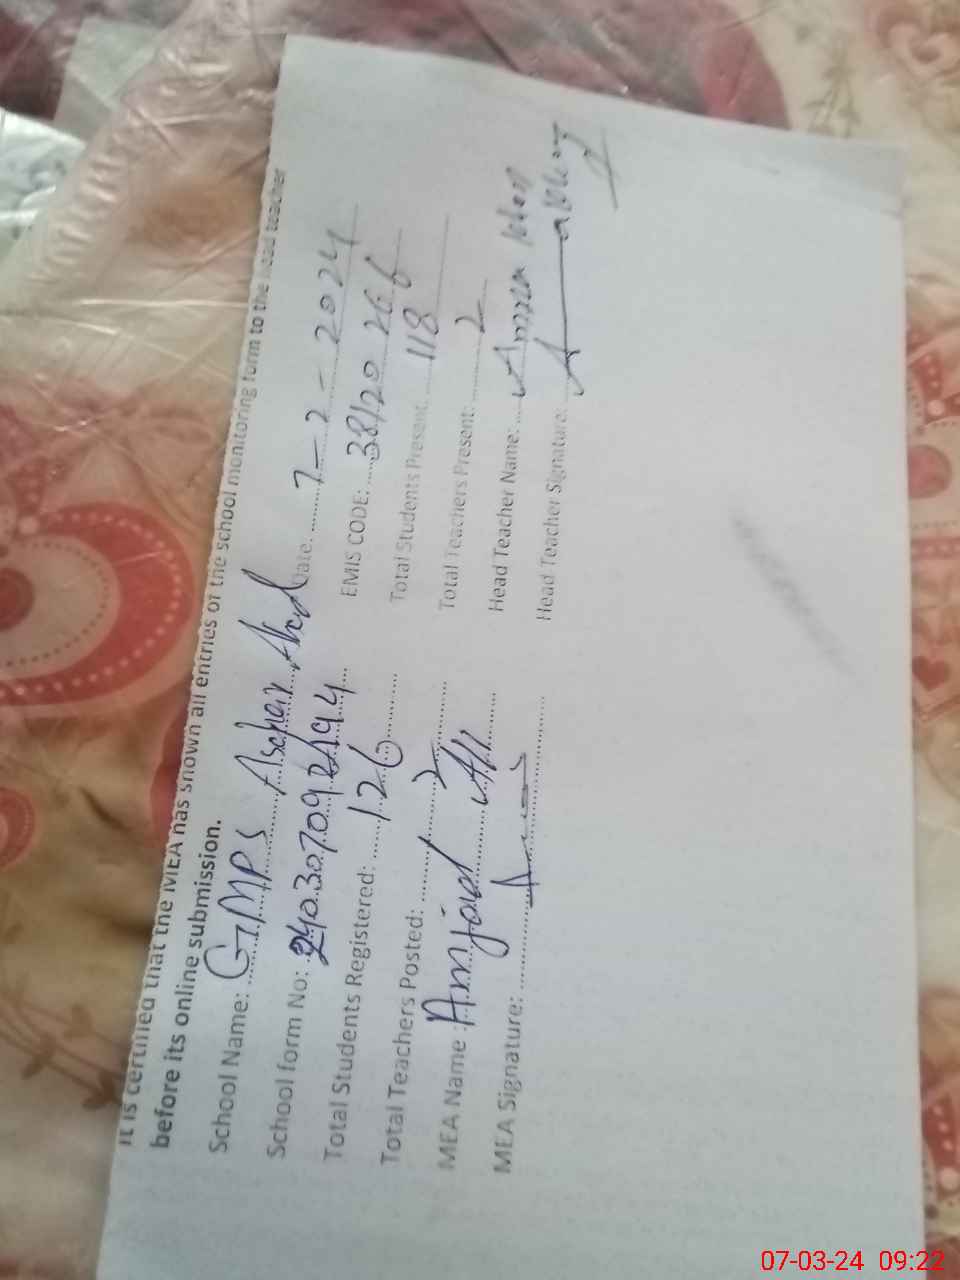 It is certified that the MEA has shown all entries of the school monitoring form to the head teacher
before its online submission.
School Name: GMPS Asghar Abad Date: 7-2-2024
School form No: EMIS CODE: 38120266
Total Students Registered: 126 Total Students Present: 118
Total Teachers Posted: 2 Total Teachers Present: 2
MEA Name: Amjad Ali Head Teacher Name:
MEA Signature: Head Teacher Signature:
07-03-24 09:22